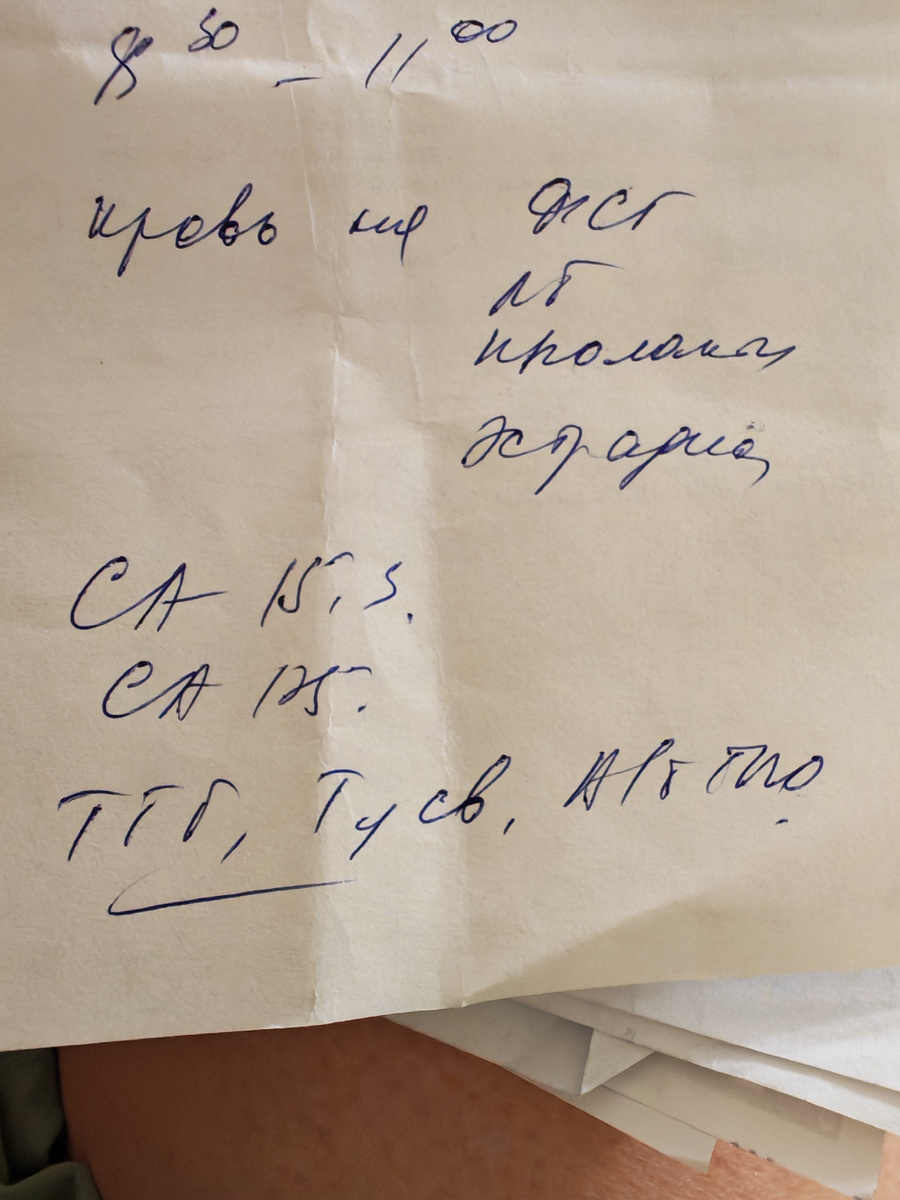 8³⁰ – 11⁰⁰
кровь на ФСГ
ЛГ
пролакт
эстрадиол
СА 15,3.
СА 125.
ТТГ, Т4 св, АТ к ТПО.